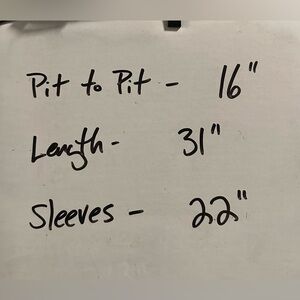 Pit to Pit - 16"
Length - 31"
Sleeves - 22"